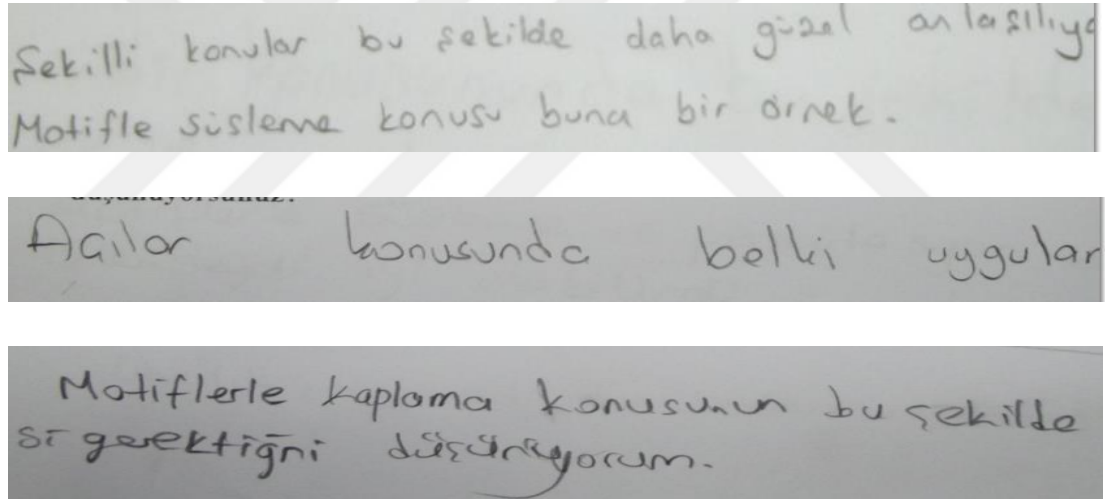 Şekilli konular bu şekilde daha güzel anlaşılıyo
Motifle süsleme konusu buna bir örnek.
düşünüyorsunuz.
Açılar konusunda belki uygular
Motiflerle kaplama konusunun bu şekilde
si gerektiğni düşünüyorum.